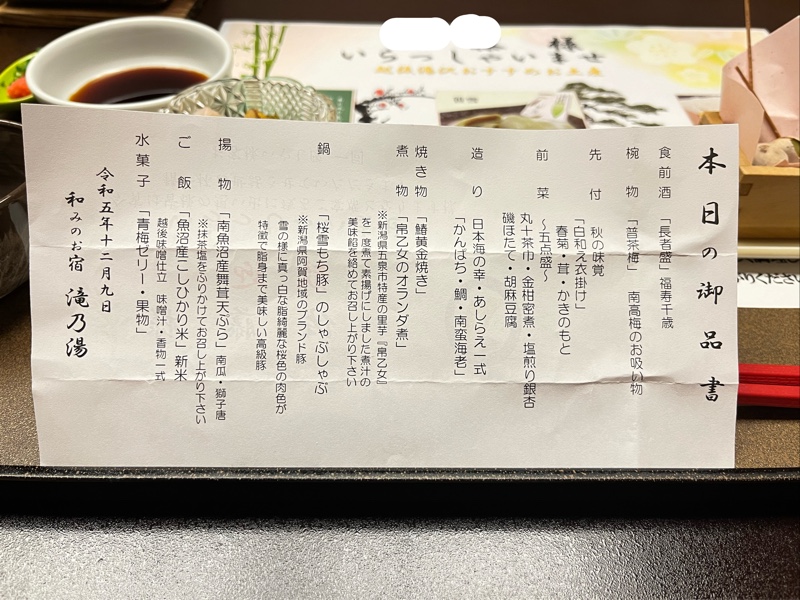 様
いらっしゃいませ
越後湯沢おすすめお土産
本日の御品書
食前酒 「長者盛」福寿千歳
椀物 「普茶梅」 南高梅のお吸い物
先付 秋の味覚
「白和え衣掛け」
春菊・茸・かきのもと
前菜 ～五点盛～
丸十茶巾・金柑密煮・塩煎り銀杏
磯ほたて・胡麻豆腐
造り 日本海の幸・あしらえ一式
「かんぱち・鯛・南蛮海老」
焼き物 「鰆黄金焼き」
煮物 「帛乙女のオランダ煮」
※新潟県五泉市特産の里芋『帛乙女』
を一度煮て素揚げにしました煮汁の
美味餡を絡めてお召し上がり下さい
鍋 「桜雪もち豚」のしゃぶしゃぶ
※新潟県阿賀地域のブランド豚
雪の様に真っ白な脂綺麗な桜色の肉色が
特徴で脂身まで美味しい高級豚
揚物 「南魚沼産舞茸天ぷら」南瓜・獅子唐
※抹茶塩をふりかけてお召し上がり下さい
ご飯 「魚沼産こしひかり米」新米
越後味噌仕立 味噌汁・香物一式
水菓子 「青梅ゼリー・果物」
令和五年十二月九日
和みのお宿 滝乃湯